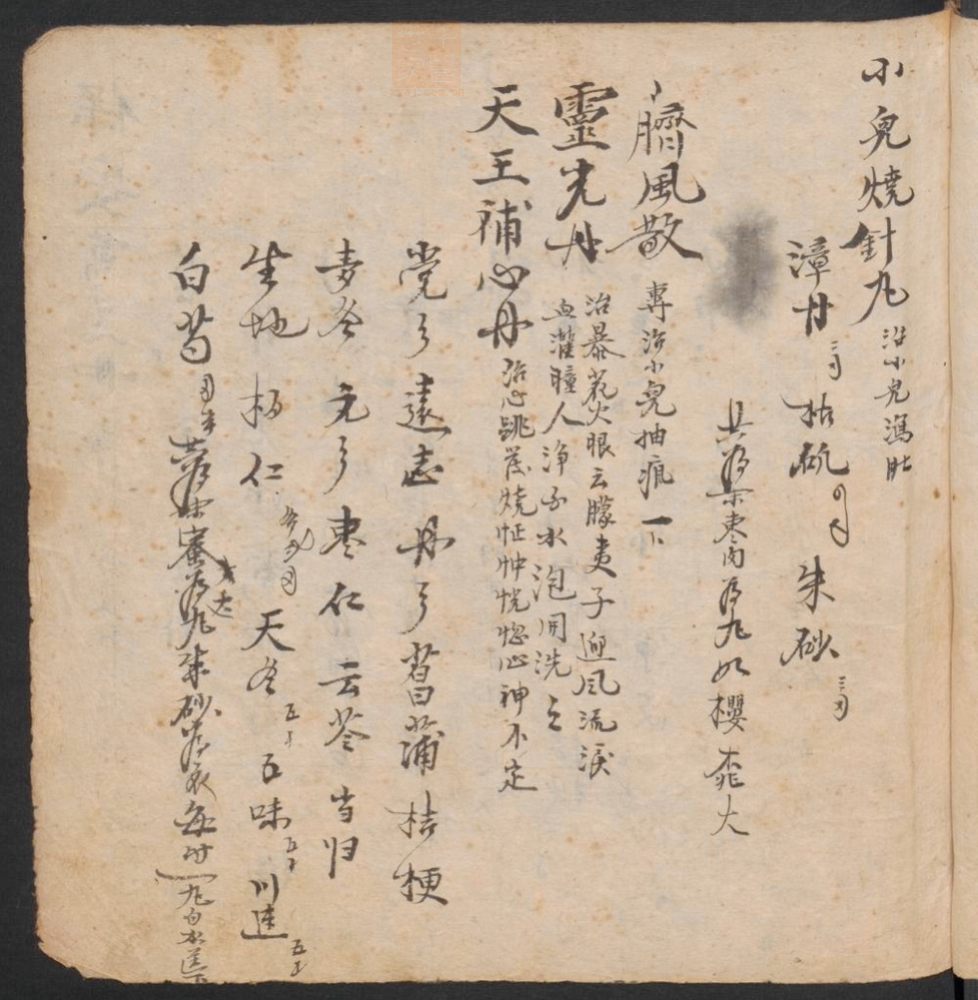 小兒燒針丸 治小兒瀉肚
漳丹 三匁 枯矾 朱砂 三匁
共為末棗肉為丸如櫻桃大
臍風散 專治小兒抽瘋
靈光丹 治暴荒火眼云朦夷子迎風流淚
血灌瞳人淨子水泡用洗之
天王補心丹 治心跳發燒怔忡恍惚心神不定
党參 遠志 丹參 菖蒲 桔梗
麦冬 元參 枣仁 云苓 当归
生地 柏仁 天冬 五味 川連
白芍 共為末蜜為丸朱砂為衣每付一丸白水送下